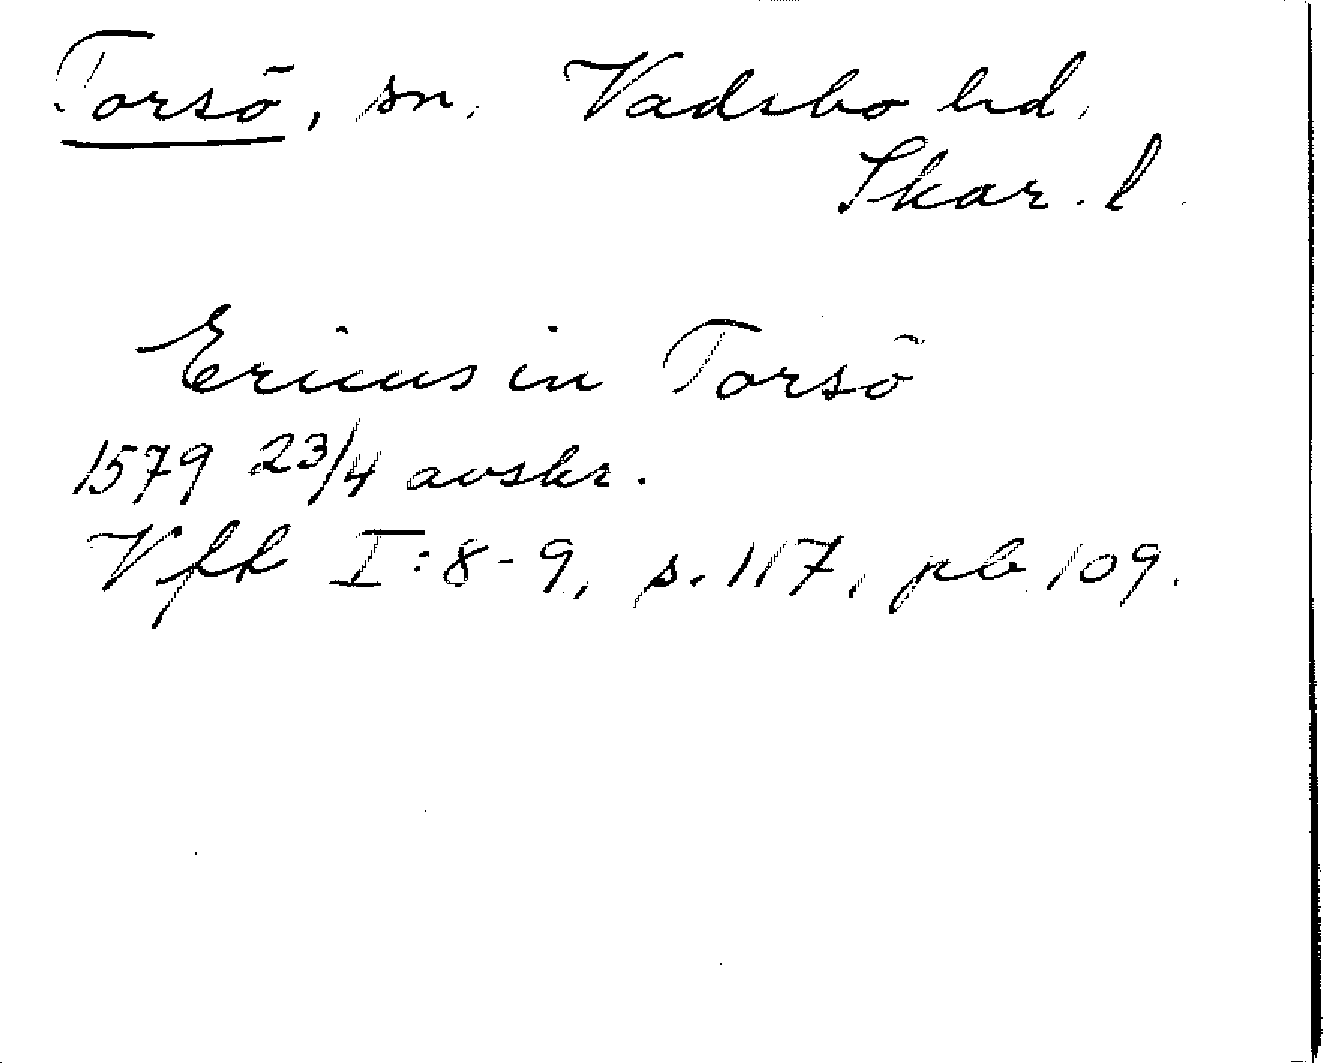 Torsö, sn, Vadsbo hd,
Skar. l.
Ericus in Torsö
1579 23/4 avskr.
Vfk I:8-9, s. 117, pb 109.